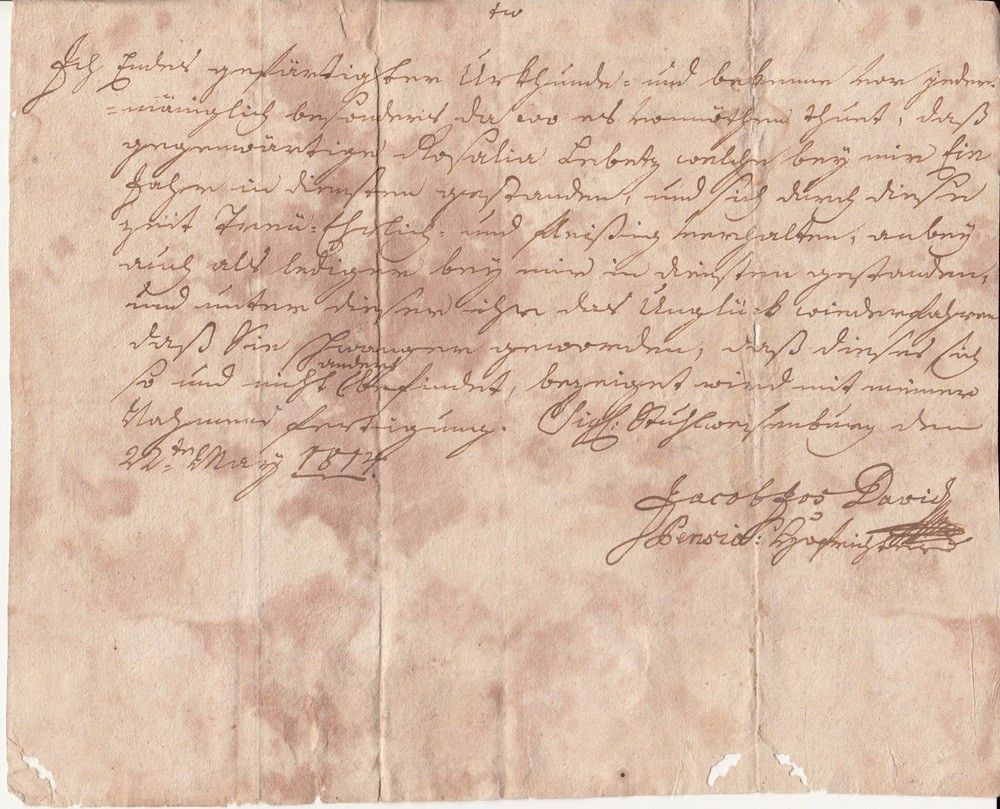 Ich Endes gefärtigter Urkhunde = und bekenne vor jeder=
=mäniglich besonders da wo es vonnöthen thuet, daß
gegenwärtige Rosalia Lebetz welche bey mir Ein
Jahr in diensten gestanden, und sich durch diese
zeit Treu = Ehrlich = und fleißig verhalten, anbey
auch als lediger bey mir in diensten gestanden,
und unter dieser ihr das Unglück wiederfahren
daß Sie Schwanger geworden, daß dieses sich
so und nicht anders befindet, bezeiget wird mit meiner
Nahmens fertigung. Sigl: Stuhlweisenburg den
22ten May 1817.
Jacob Jos David
Pensio: